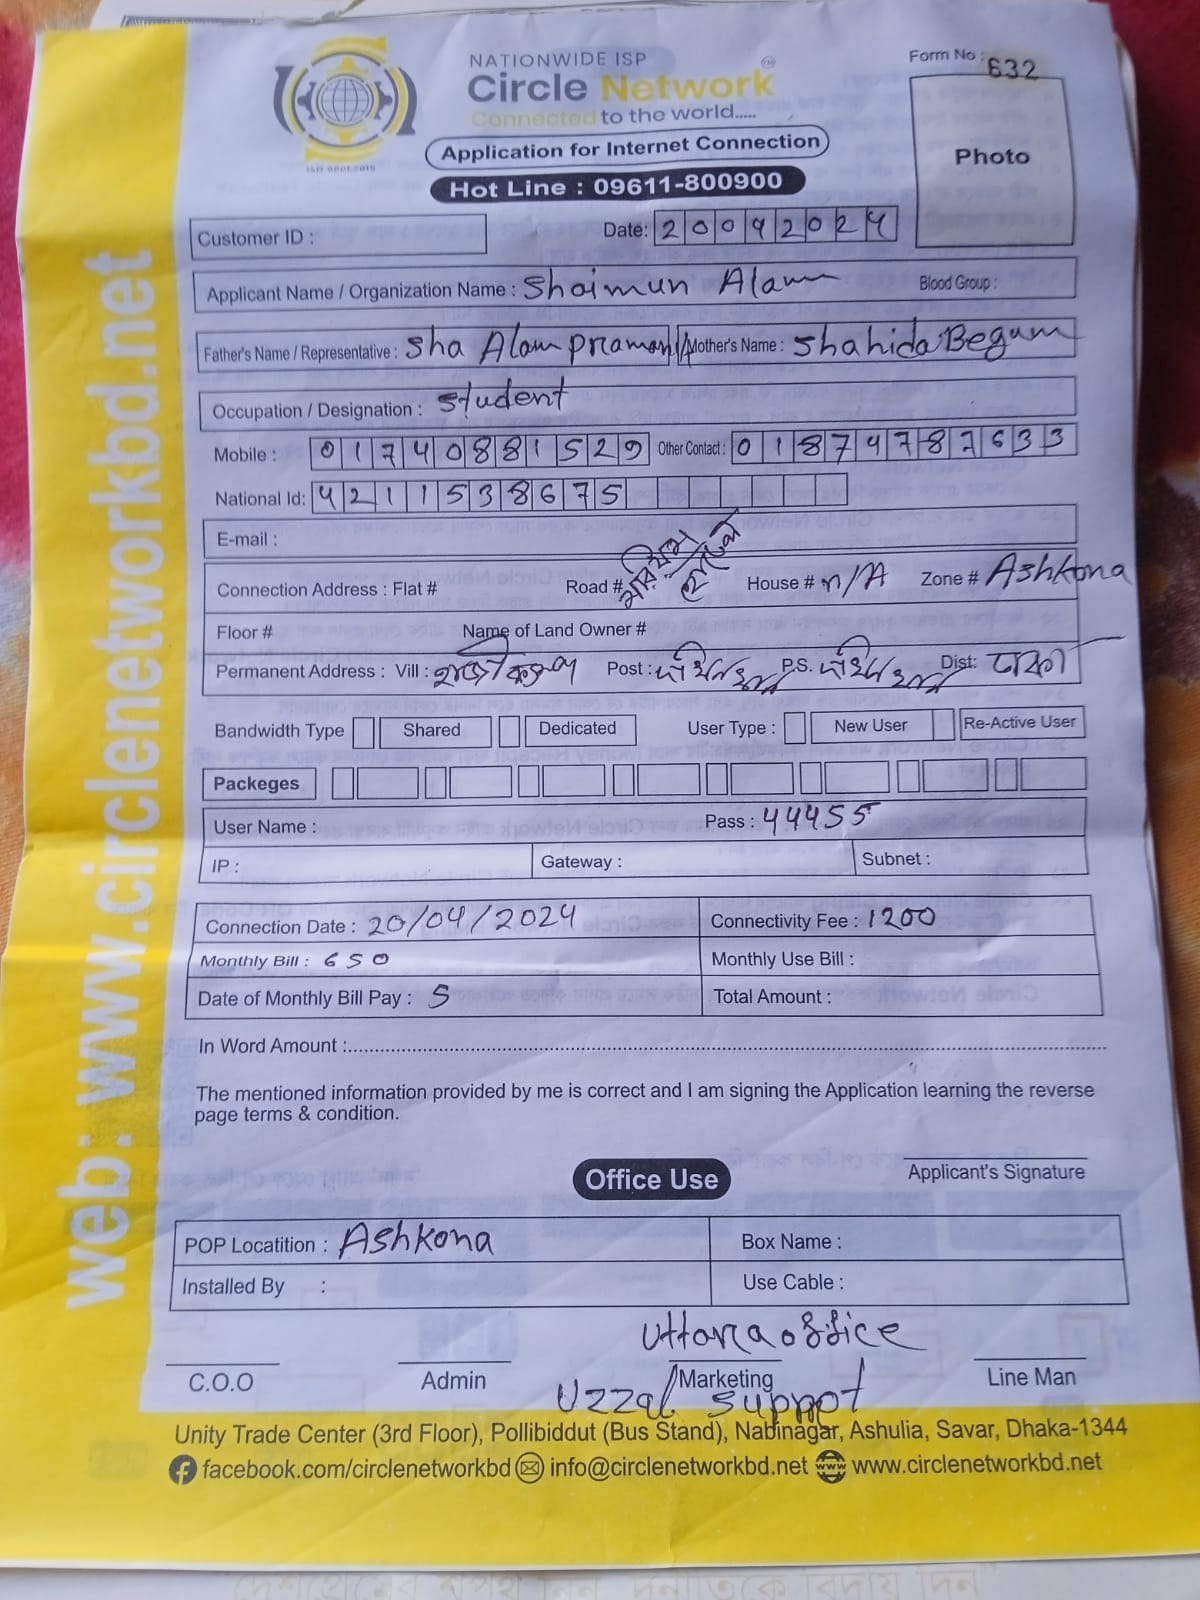 NATIONWIDE ISP
Circle Network TM
Connected to the world.....
ISO 9001:2015
Form No : 632
Photo
Application for Internet Connection
Hot Line : 09611-800900
Customer ID :
Date: 20042024
Applicant Name / Organization Name : Shaimun Alam Blood Group :
Father's Name / Representative : Sha Alam pramanik Mother's Name : Shahida Begum
Occupation / Designation : Student
Mobile : 01740881529 Other Contact : 01874787633
National Id: 4211538675
E-mail :
Connection Address : Flat # Road # House # n/A Zone # Ashkona
Floor # Name of Land Owner #
Permanent Address : Vill : Post : দক্ষিনখান P.S. দক্ষিনখান Dist: ঢাকা
Bandwidth Type Shared Dedicated User Type : New User Re-Active User
Packeges
User Name : Pass : 44455
IP : Gateway : Subnet :
Connection Date : 20/04/2024 Connectivity Fee : 1200
Monthly Bill : 650 Monthly Use Bill :
Date of Monthly Bill Pay : 5 Total Amount :
In Word Amount :
The mentioned information provided by me is correct and I am signing the Application learning the reverse
page terms & condition.
Office Use
Applicant's Signature
POP Locatition : Ashkona Box Name :
Installed By : Use Cable :
Uttara office
C.O.O Admin Marketing Line Man
Uzzal Support
Unity Trade Center (3rd Floor), Pollibiddut (Bus Stand), Nabinagar, Ashulia, Savar, Dhaka-1344
facebook.com/circlenetworkbd info@circlenetworkbd.net www www.circlenetworkbd.net
web: www.circlenetworkbd.net